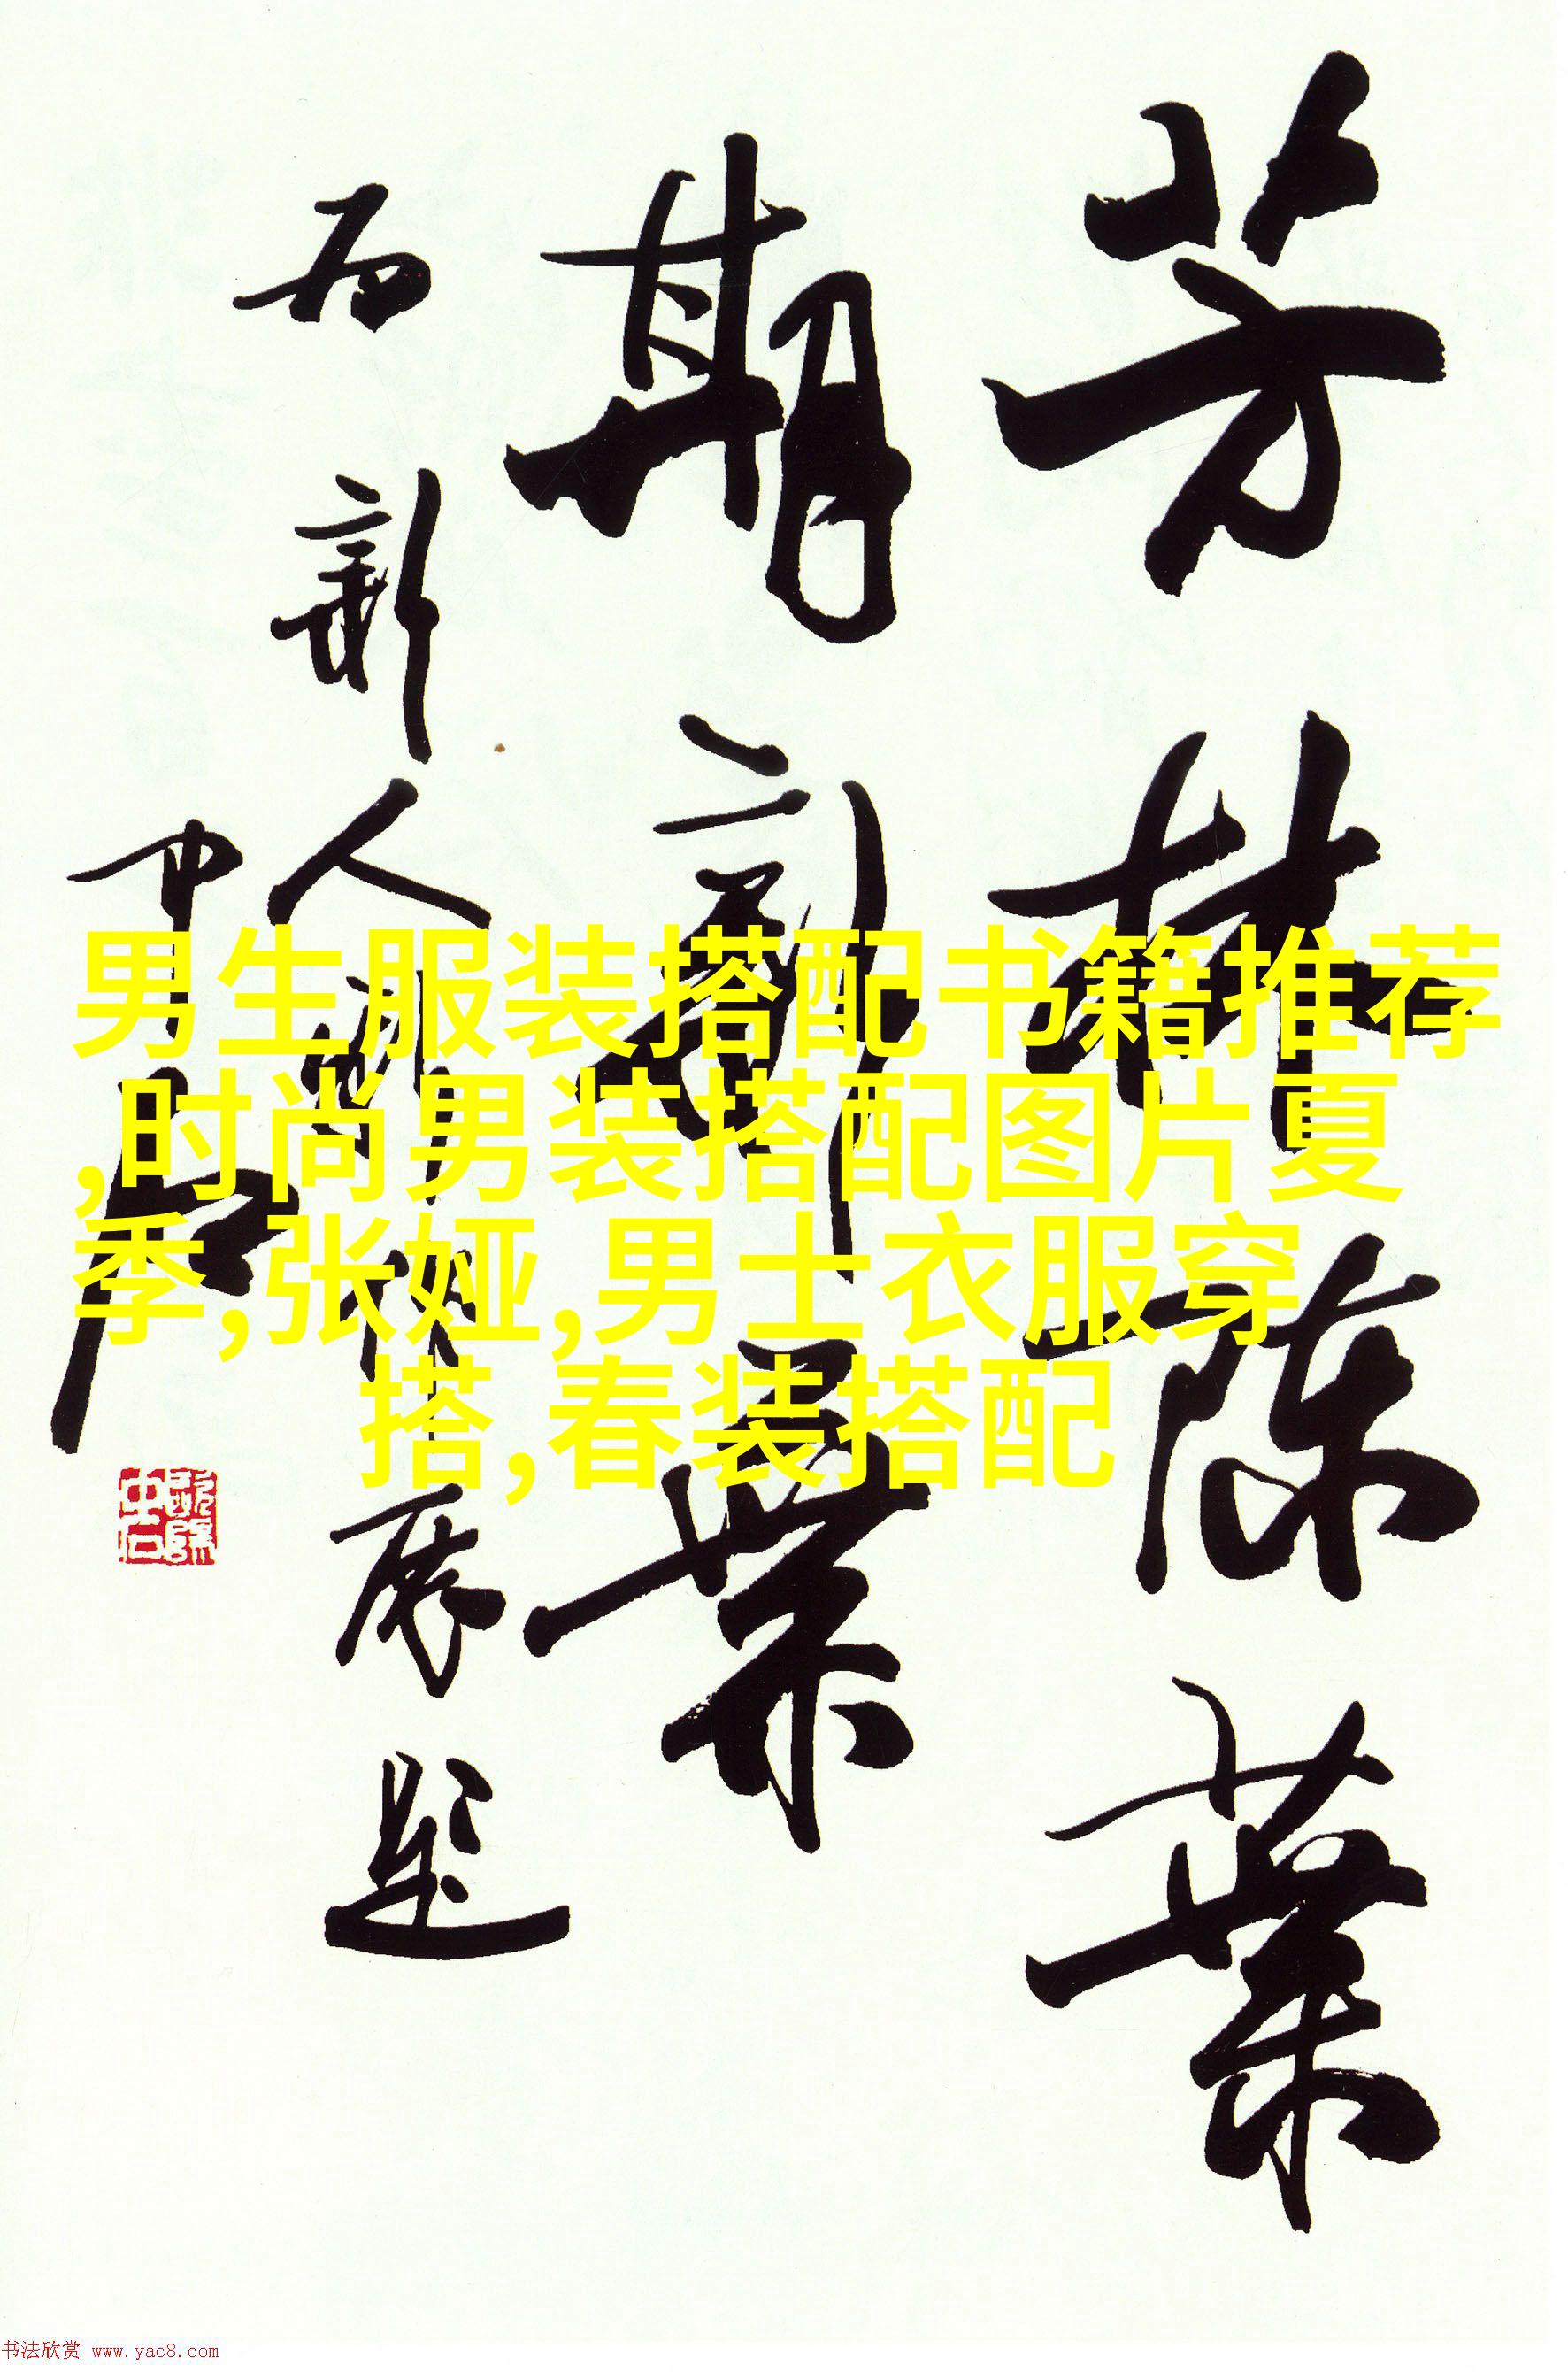 芳林陈叶
期新叶
为新人新作展题
中石
男生服装搭配书籍推荐
,时尚男装搭配图片夏
季,张娅,男士衣服穿
搭,春装搭配
书法欣赏 www.yac8.com